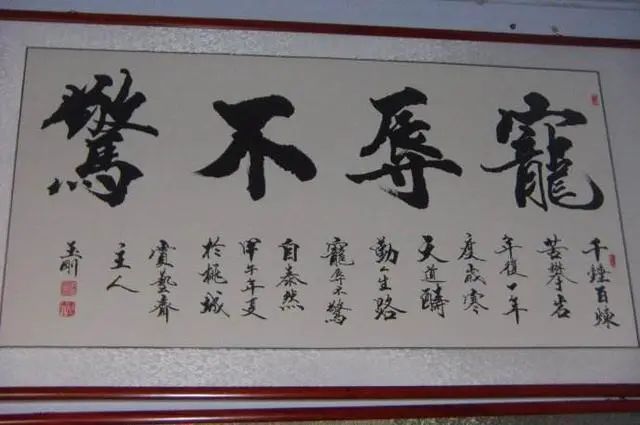 寵辱不驚
千錘百煉
苦攀岩
年復一年
度歲寒
天道酬
勤人生路
寵辱不驚
自泰然
甲午年夏
於桃城
賞藝齋
主人